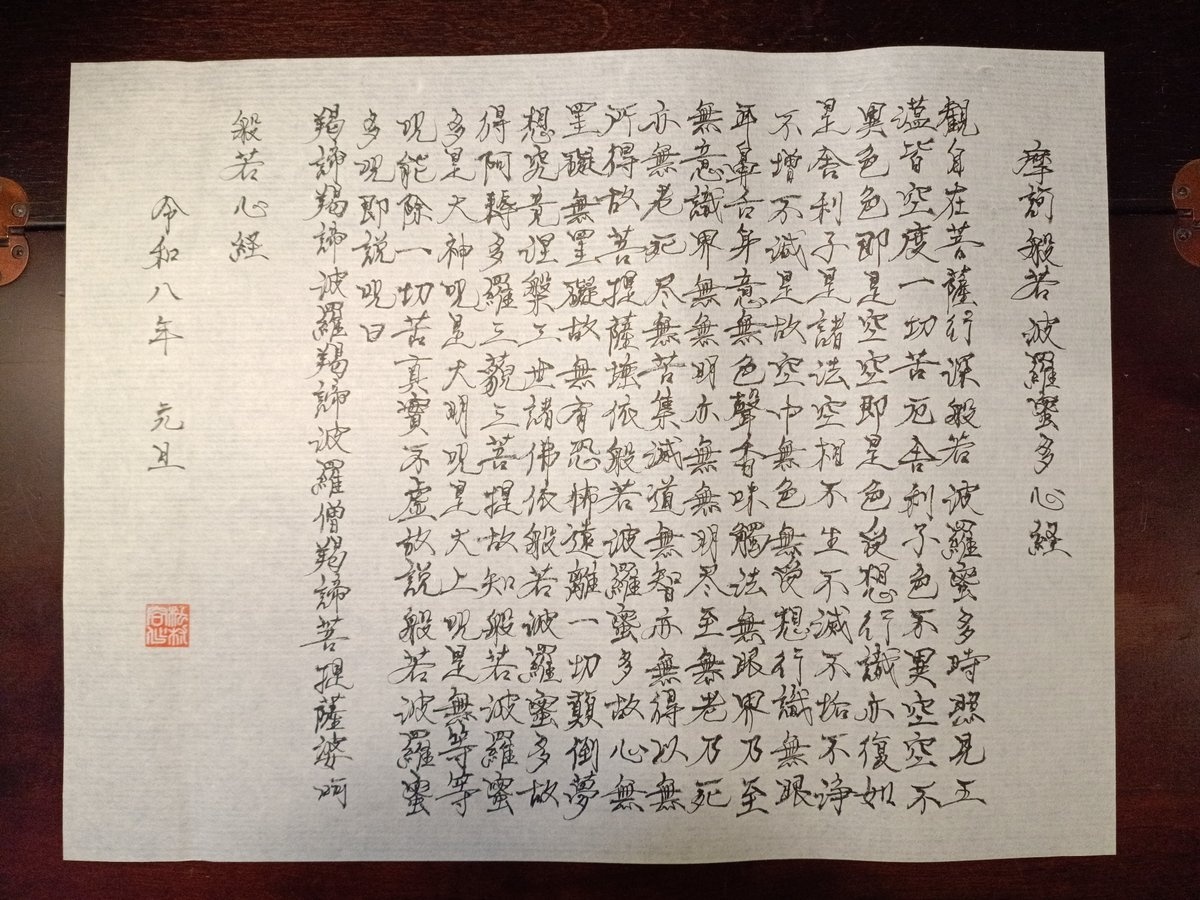 摩訶般若波羅蜜多心経
観自在菩薩行深般若波羅蜜多時照見五
蘊皆空度一切苦厄舎利子色不異空空不
異色色即是空空即是色受想行識亦復如
是舎利子是諸法空相不生不滅不垢不浄
不増不減是故空中無色無受想行識無眼
耳鼻舌身意無色聲香味觸法無眼界乃至
無意識界無無明亦無無明尽至無老乃死
亦無老死尽無苦集滅道無智亦無得以無
所得故菩提薩埵依般若波羅蜜多故心無
罣礙無罣礙故無有恐怖遠離一切顛倒夢
想究竟涅槃三世諸佛依般若波羅蜜多故
得阿耨多羅三藐三菩提故知般若波羅蜜
多是大神呪是大明呪是大上呪是無等等
呪能除一切苦真實不虚故説般若波羅蜜
多呪即説呪曰
羯諦羯諦波羅羯諦波羅僧羯諦菩提薩婆訶
般若心経
令和八年 元旦